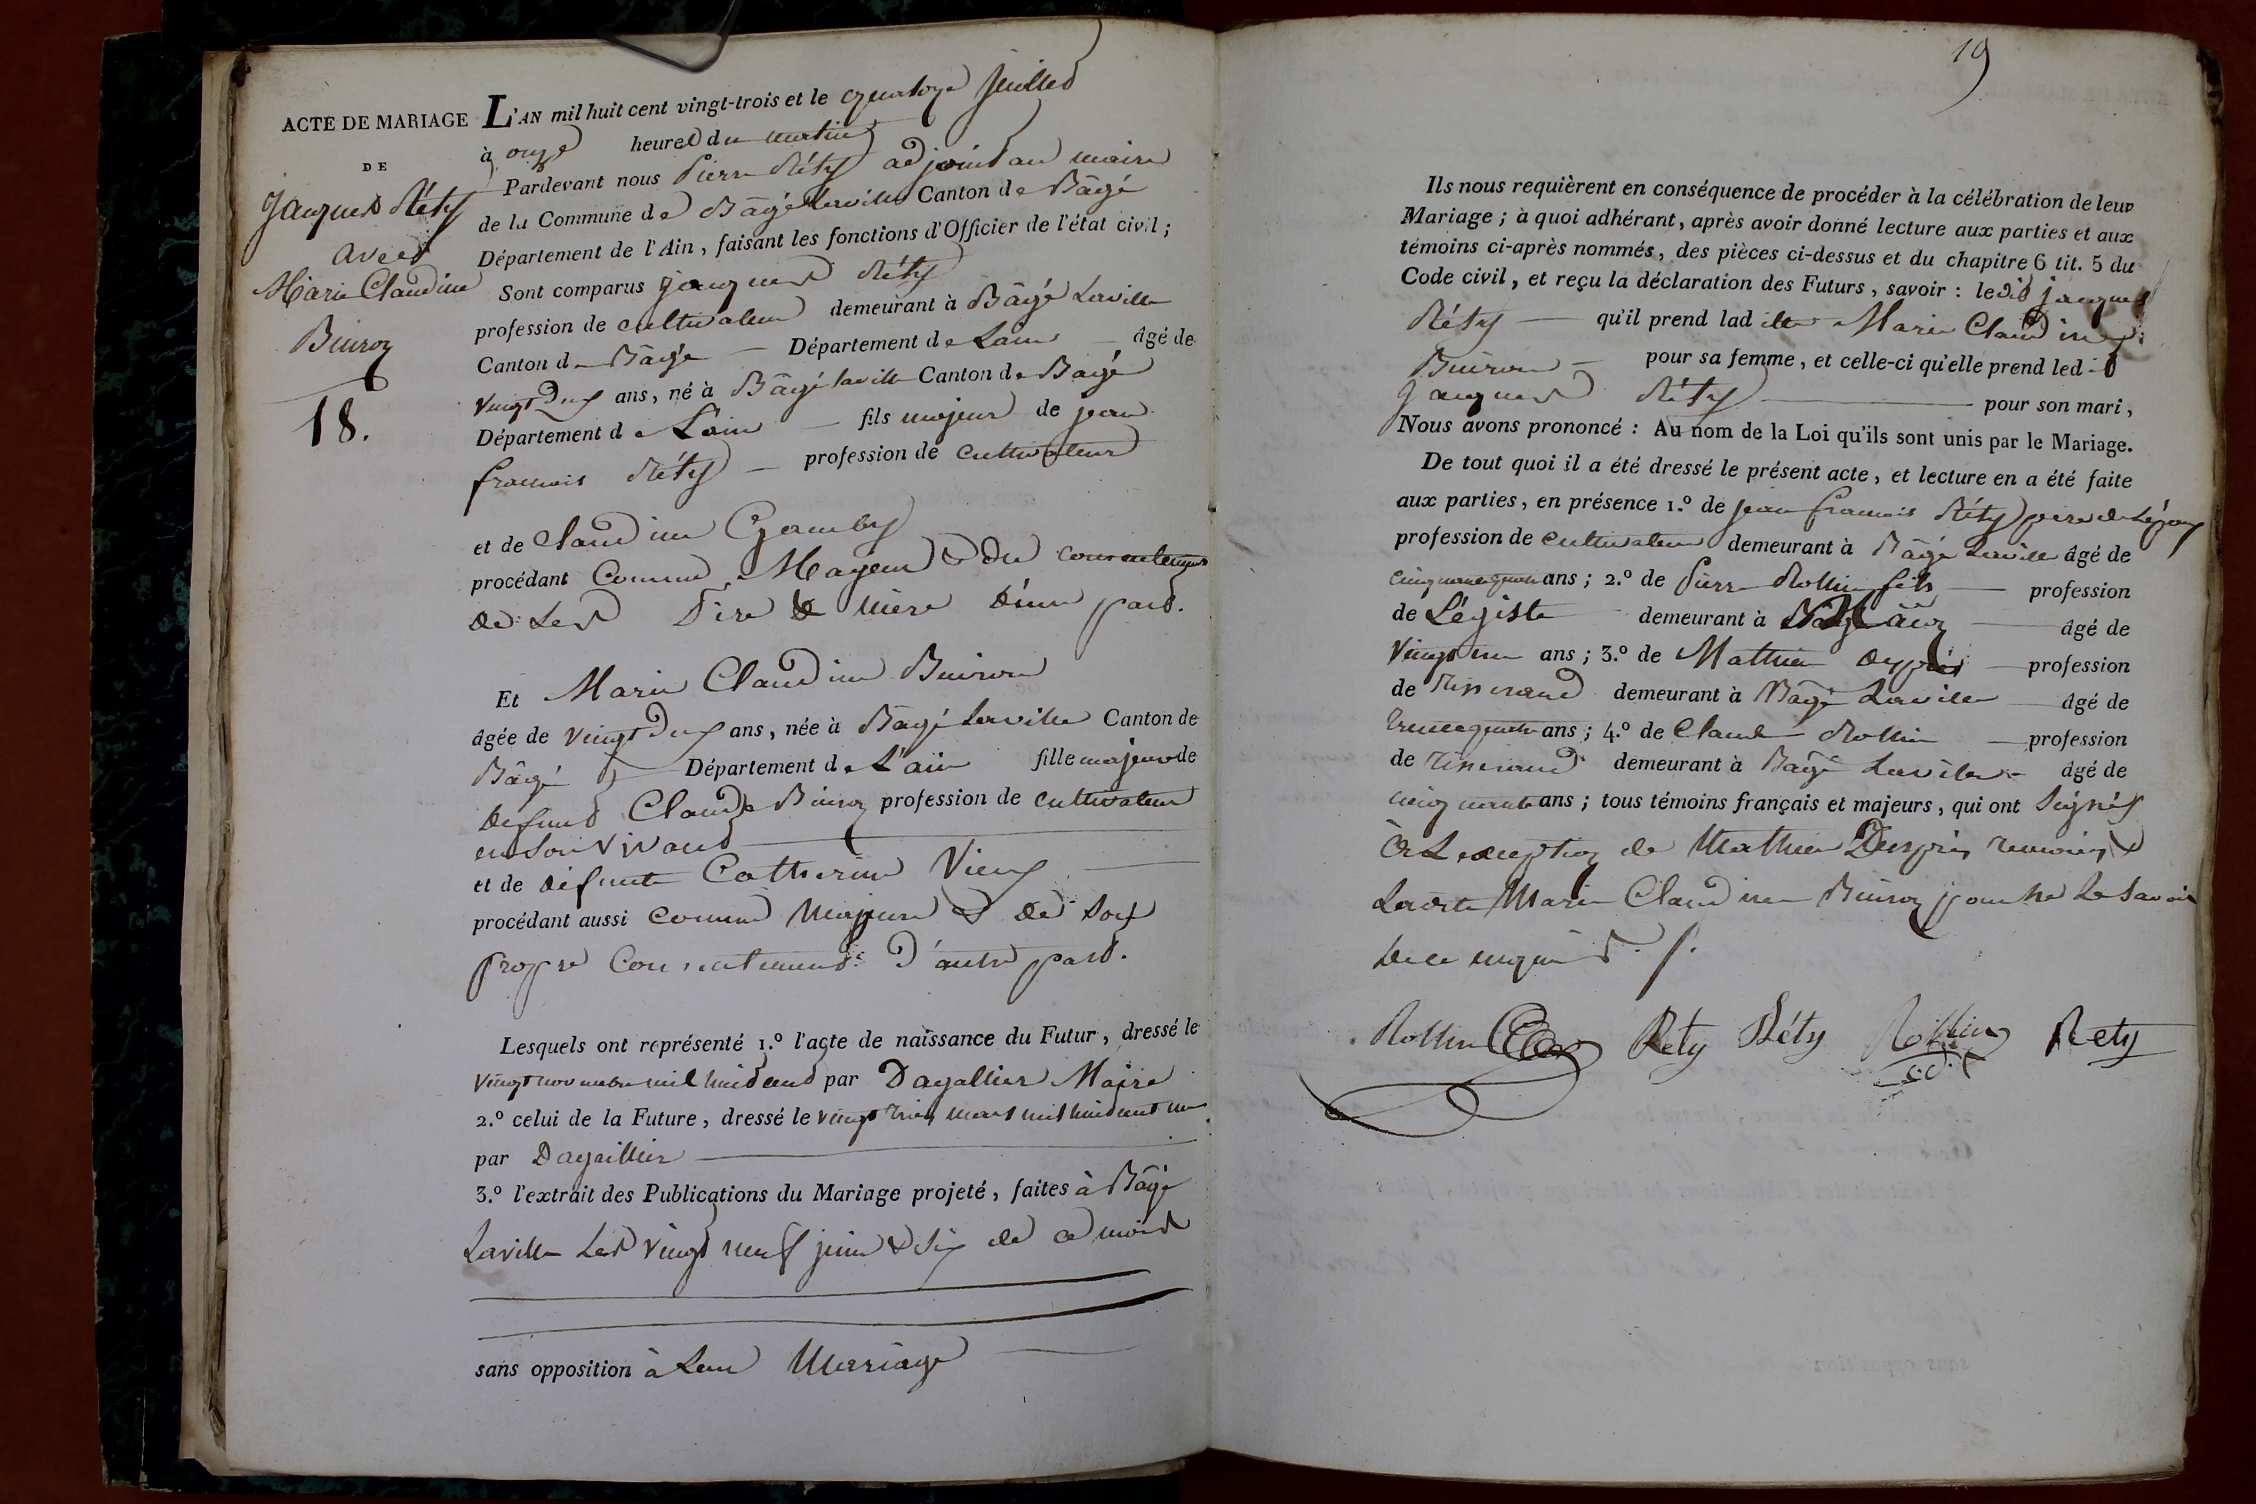 ACTE DE MARIAGE
DE
Jacques Réty
avec
Marie Claudine
Buiron
18.
L'AN mil huit cent vingt-trois et le quatorze juillet
à onze heures du matin
Pardevant nous Pierre Réty adjoint au maire
de la Commune de Bâgé Laville Canton de Bâgé
Département de l'Ain, faisant les fonctions d'Officier de l'état civil;
Sont comparus jacques Réty
profession de cultivateur demeurant à Bâgé Laville
Canton de Bâgé Département de Lain âgé de
vingt deux ans, né à Bâgé laville Canton de Bâgé
Département de L'ain fils majeur de jean
francois Réty profession de cultivateur
et de Claudine Gamby
procédant comme Mageur & du consentement
de Les Père & mère d'une part.
Et Marie Claudine Buiron
âgée de vingt deux ans, née à Bâgé Laville Canton de
Bâgé Département de L'ain fille majeure de
defunt Claude Buiron profession de cultivateur
en son vivant
et de défunte Catherine Vieux
procédant aussi comme majeure & de son
propre consentement d'autre part.
Lesquels ont représenté 1.º l'acte de naissance du Futur, dressé le
vingt novembre mil huit cent par Dagallier Maire
2.º celui de la Future, dressé le vingt trois mars mil huit cent un
par Dagallier
3.º l'extrait des Publications du Mariage projeté, faites à Bâgé
Laville Les vingt neuf juin & six de ce mois
sans opposition à Leur Mariage
19
Ils nous requièrent en conséquence de procéder à la célébration de leur
Mariage; à quoi adhérant, après avoir donné lecture aux parties et aux
témoins ci-après nommés, des pièces ci-dessus et du chapitre 6 tit. 5 du
Code civil, et reçu la déclaration des Futurs, savoir: ledit jacques
Réty qu'il prend lad ite Marie Claudine
Buiron pour sa femme, et celle-ci qu'elle prend led it
jacques Réty pour son mari,
Nous avons prononcé: Au nom de la Loi qu'ils sont unis par le Mariage.
De tout quoi il a été dressé le présent acte, et lecture en a été faite
aux parties, en présence 1.º de jean francois Réty père de Lépoux
profession de cultivateur demeurant à Bâgé Laville âgé de
cinquante quatre ans; 2.º de Pierre Rollin fils profession
de Légiste demeurant à âgé de
vingt un ans; 3.º de Mathieu Despres profession
de Tisserand demeurant à Bâgé Laville âgé de
trente quatre ans; 4.º de Claude Rollin profession
de Tisserand demeurant à Bâgé Laville âgé de
cinquante ans; tous témoins français et majeurs, qui ont signés
à L'exception de Mathieu Despres temoins &
Ladite Marie Claudine Buiron pour ne Le savoir
de ce enquis
Rollin Réty Réty Rollin Rety